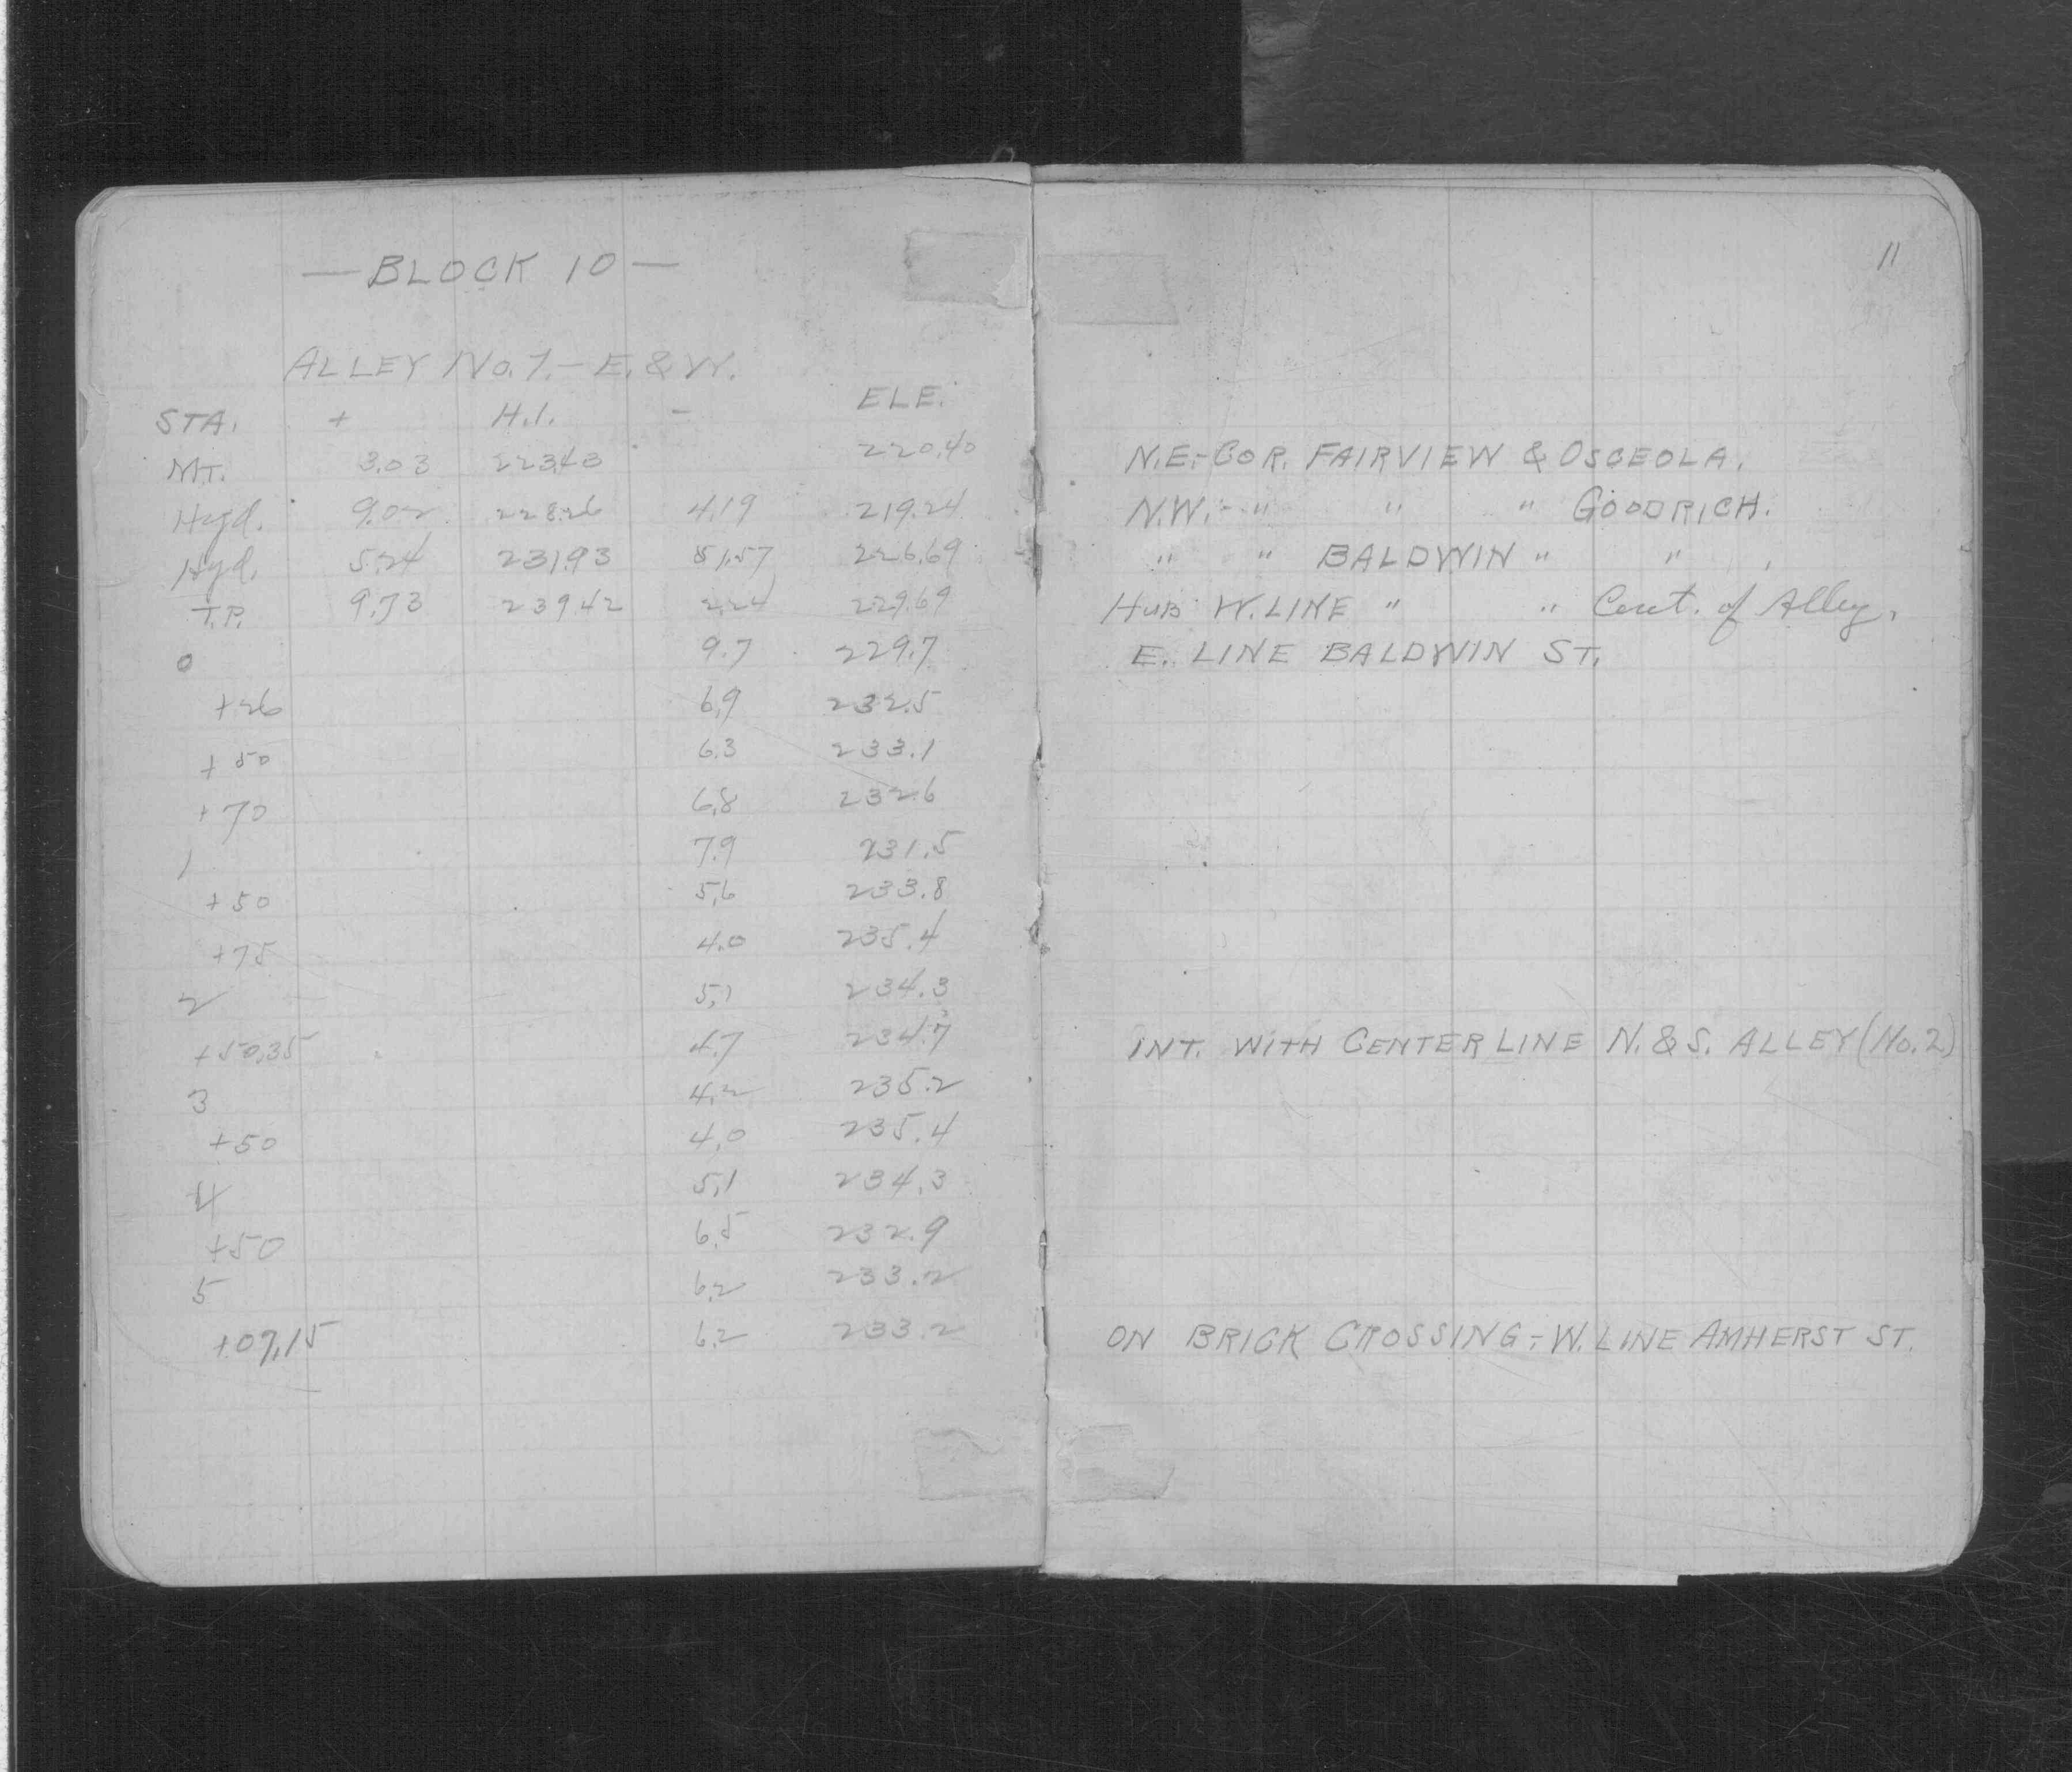 11
— BLOCK 10 —
ALLEY No. 1. — E. & W.
STA. + H.I. - ELE.
M.T. 3.03 223.43 220.40 N.E.-COR. FAIRVIEW & OSCEOLA.
Hyd. 9.02 228.26 4.19 219.24 N.W.- " " " GOODRICH.
Hyd. 5.24 231.93 1.57 226.69 " " BALDWIN " "
T.P. 9.73 239.42 2.24 229.69 HUB W. LINE " " Cent. of Alley.
0 9.7 229.7 E. LINE BALDWIN ST.
+26 6.9 232.5
+50 6.3 233.1
+70 6.8 232.6
1 7.9 231.5
+50 5.6 233.8
+75 4.0 235.4
2 5.1 234.3
+50.35 4.7 234.7 INT. WITH CENTER LINE N. & S. ALLEY (No. 2)
3 4.2 235.2
+50 4.0 235.4
4 5.1 234.3
+50 6.5 232.9
5 6.2 233.2
+07.15 6.2 233.2 ON BRICK CROSSING - W. LINE AMHERST ST.